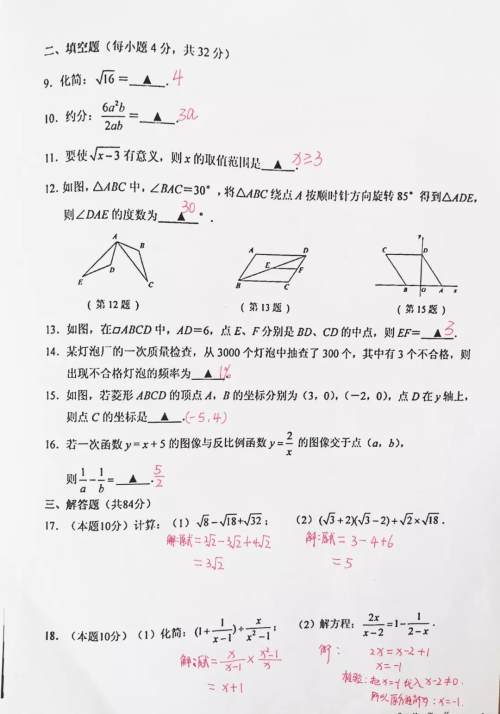 二、填空题（每小题 4 分，共 32 分）
9. 化简：√16 = ▲ . 4
10. 约分：6a²b/2ab = ▲ . 3a
11. 要使√x−3 有意义，则 x 的取值范围是 ▲ . x≥3
12. 如图，△ABC 中，∠BAC=30°，将△ABC 绕点 A 按顺时针方向旋转 85° 得到△ADE，
则∠DAE 的度数为 ▲ °. 30
A B D E C
A D E F B C
y C D B O A x
（第12题） （第13题） （第15题）
13. 如图，在▱ABCD 中，AD=6，点 E、F 分别是 BD、CD 的中点，则 EF= ▲ . 3
14. 某灯泡厂的一次质量检查，从 3000 个灯泡中抽查了 300 个，其中有 3 个不合格，则
出现不合格灯泡的频率为 ▲ . 1%
15. 如图，若菱形 ABCD 的顶点 A，B 的坐标分别为（3，0），（−2，0），点 D 在 y 轴上，
则点 C 的坐标是 ▲ . (−5,4)
16. 若一次函数 y=x+5 的图像与反比例函数 y=2/x 的图像交于点（a，b），
则 1/a − 1/b = ▲ . 5/2
三、解答题（共84分）
17. （本题10分）计算：（1）√8−√18+√32； （2）(√3+2)(√3−2)+√2×√18 .
解:原式=2√2−3√2+4√2 解:原式= 3−4+6
=3√2 =5
18. （本题10分）（1）化简：(1+1/(x−1))÷x/(x²−1)； （2）解方程：2x/(x−2)=1−1/(2−x) .
解:原式= x/(x−1) × (x²−1)/x 解: 2x=x−2+1
= x+1 x=−1
检验:把x=−1代入x−2≠0.
所以原分程的解为:x=−1.